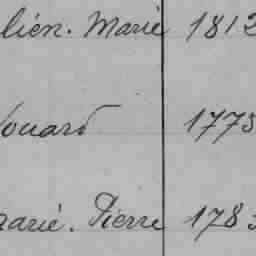 lien. Marie 1812
ouard 1773
arie. Pierre 178